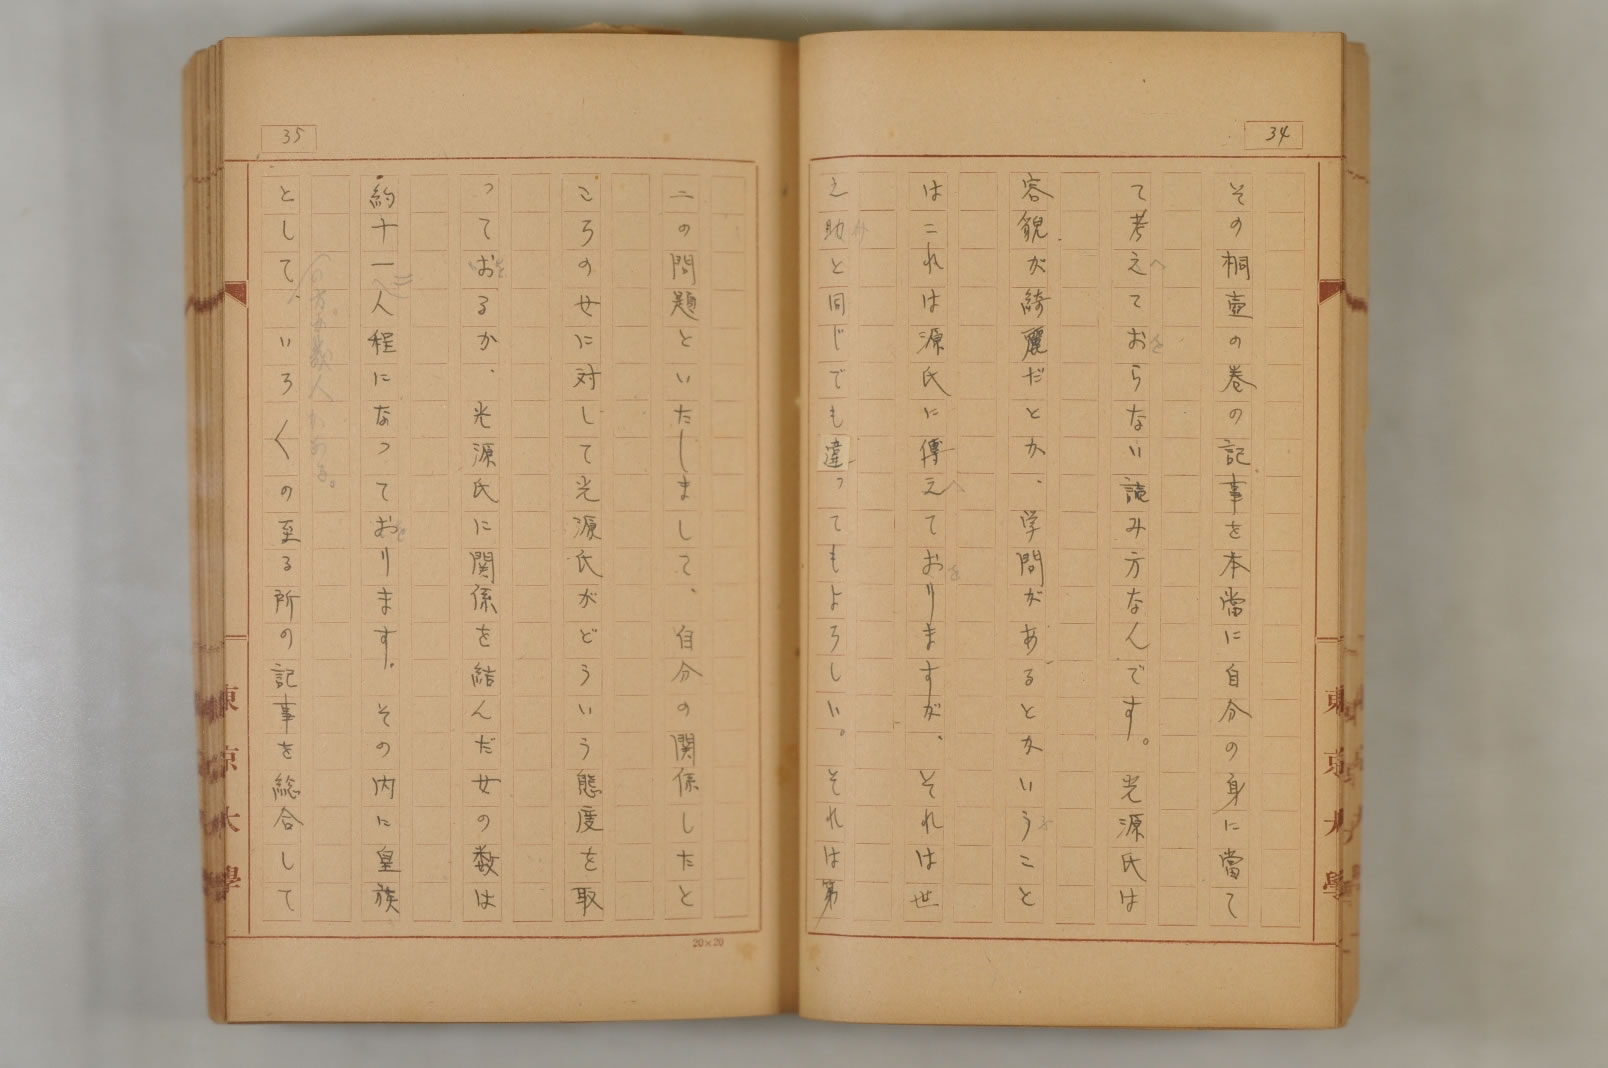 34
その桐壺の巻の記事を本當に自分の身に當て
て考えておらない読み方なんです。光源氏は
容貌が綺麗だとか、学問があるとかいうこと
はこれは源氏に傳えておりますが、それは世
之助と同じでも違ってもよろしい。それは第
東京大學
35
二の問題といたしまして、自分の関係したと
ころの女に対して光源氏がどういう態度を取
っておるか、光源氏に関係を結んだ女の数は
約十一人程になっております。その内に皇族
として、いろ〱の至る所の記事を総合して
20×20
東京大學